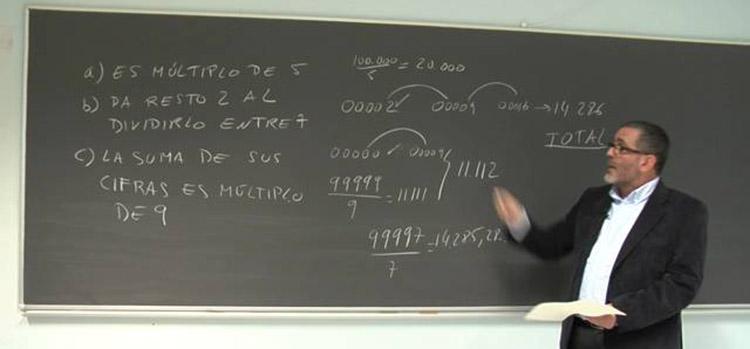 a) ES MÚLTIPLO DE 5
100.000/5 = 20.000
b) DA RESTO 2 AL
DIVIDIRLO ENTRE 7
00002 ✓ 00009 00016 → 14.286
TOTAL
c) LA SUMA DE SUS
CIFRAS ES MÚLTIPLO
DE 9
00000 ✓ 00009
99999/9 = 11.111
11.112
99997/7 = 14.285,28